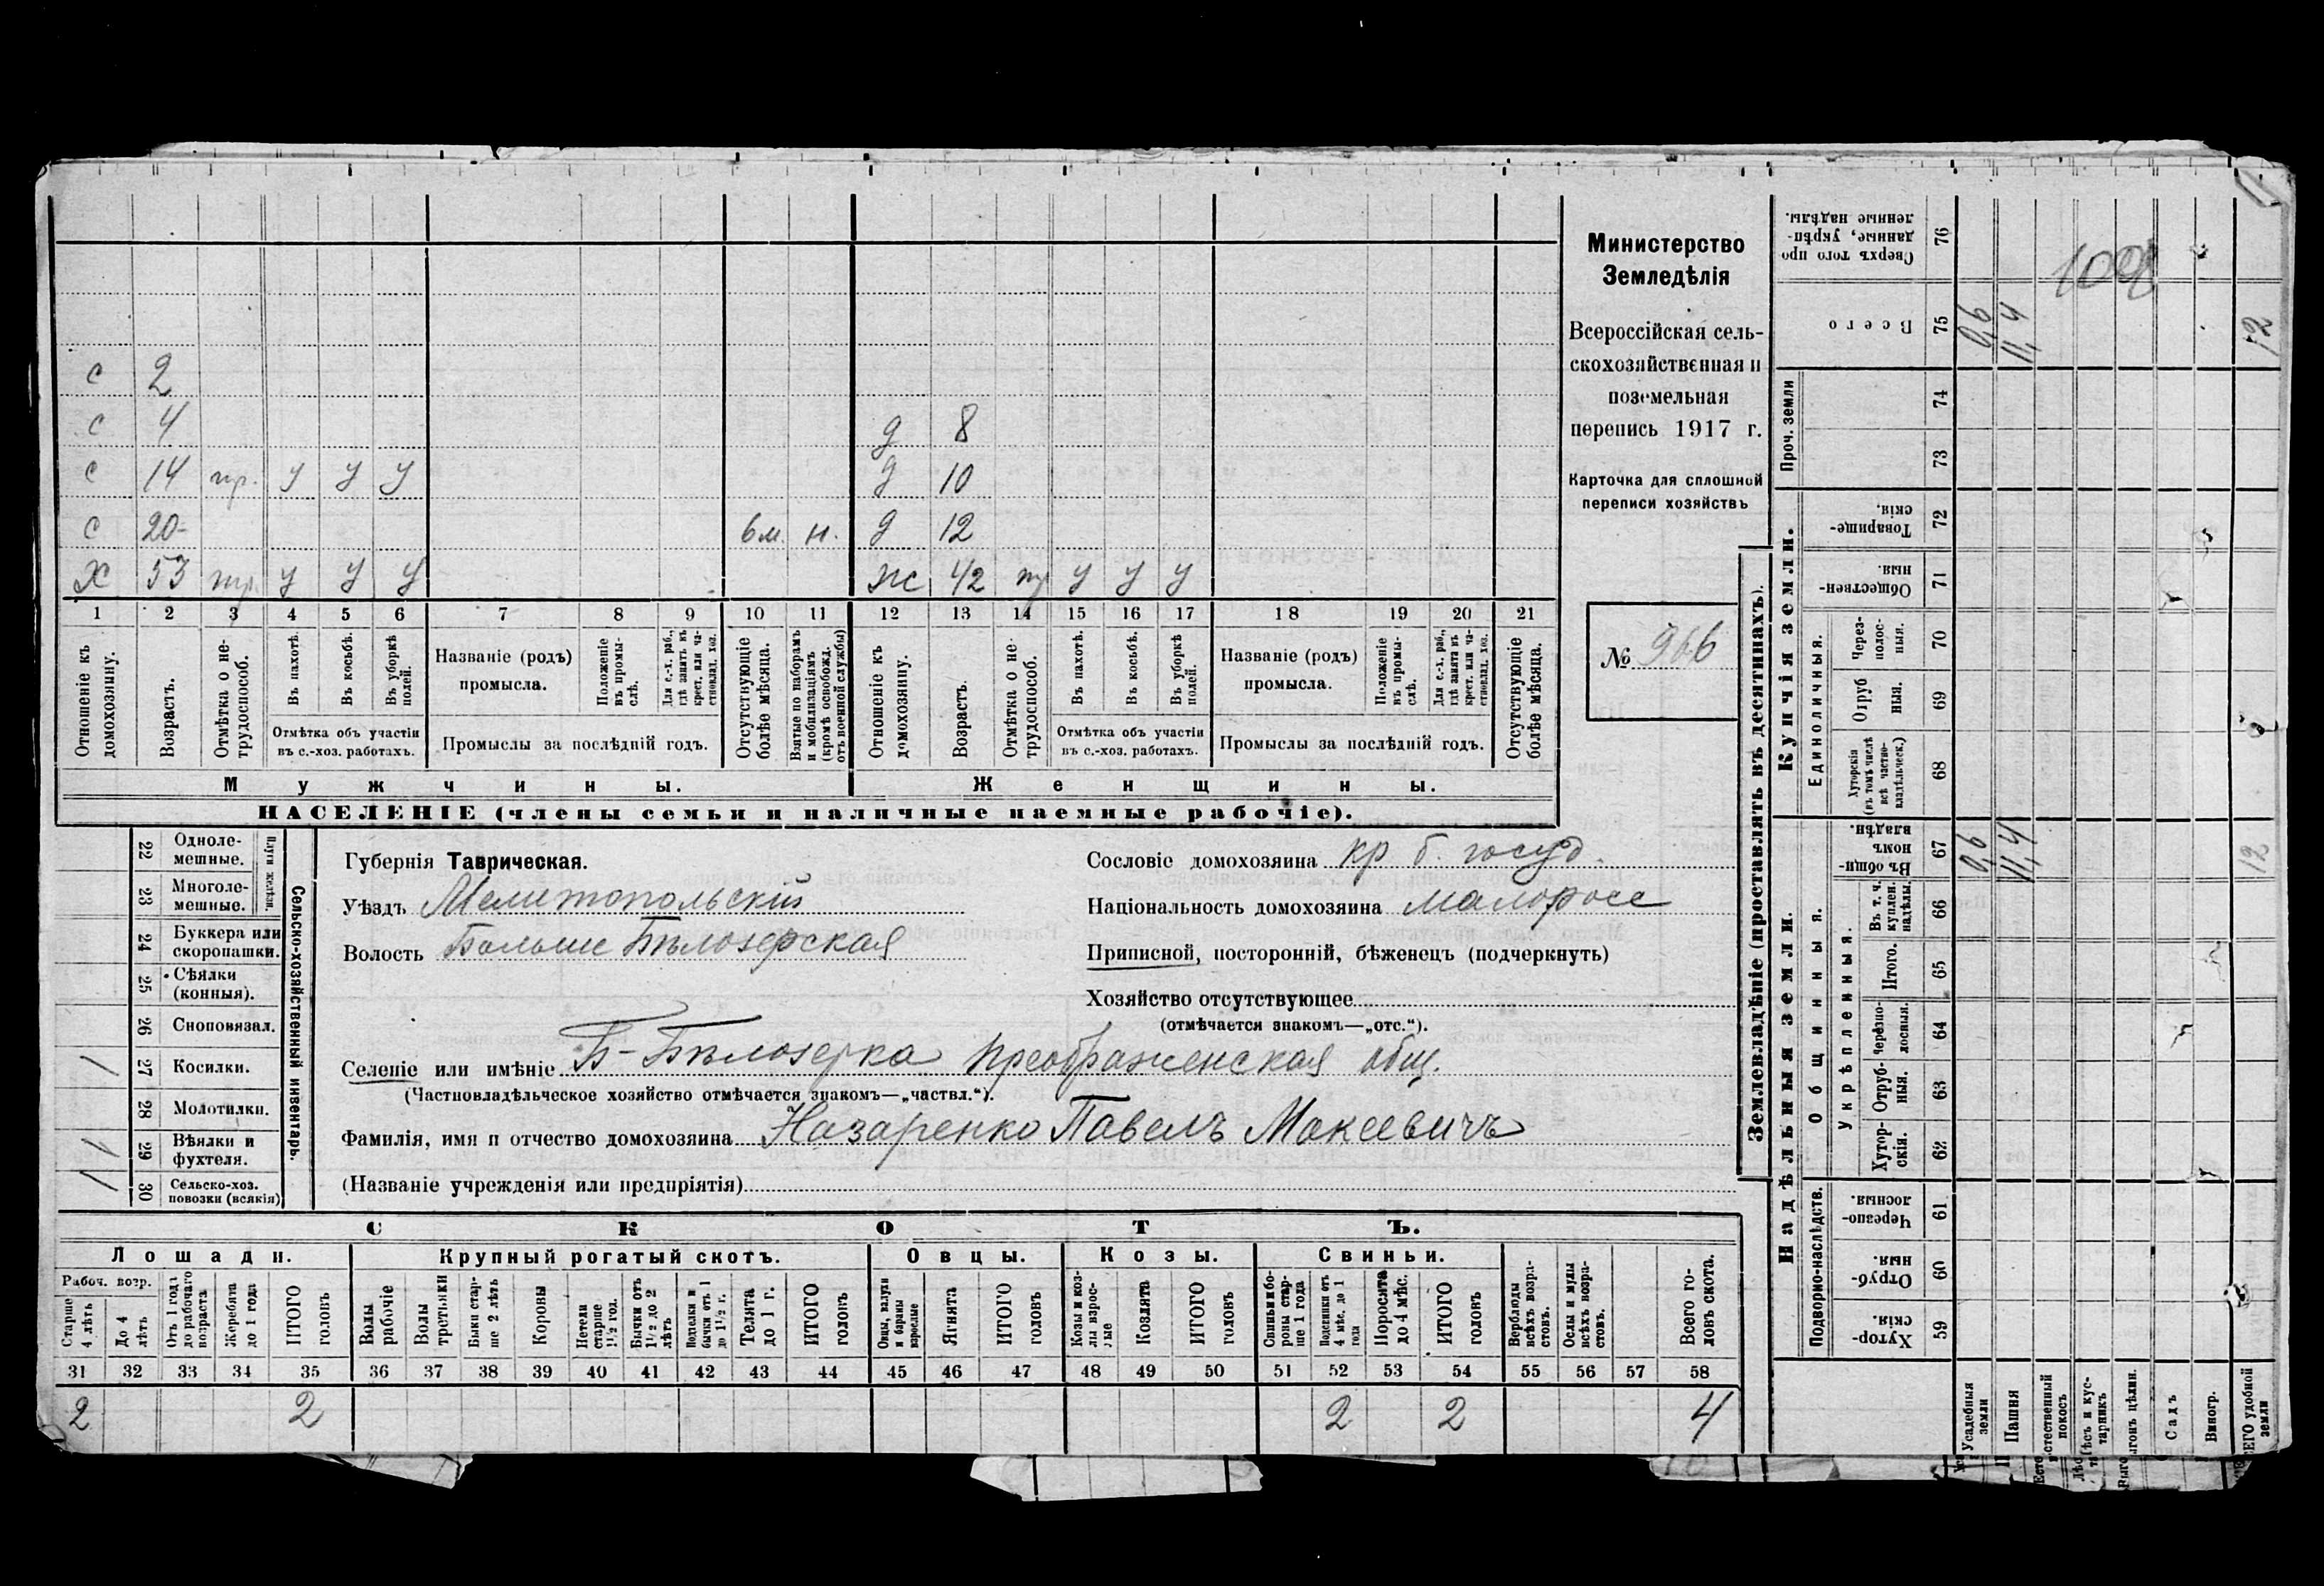 с 2
с 4 д 8
с 14 тр. у у у д 10
с 20- 6 м. н. д 12
Х 53 тр. у у у ж 42 тр у у у
1 2 3 4 5 6 7 8 9 10 11 12 13 14 15 16 17 18 19 20 21
Отношеніе къ домохозяину.
Возрастъ.
Отмѣтка о не-трудоспособ.
Въ пахотѣ.
Въ косьбѣ.
Въ уборкѣ полей.
Отмѣтка объ участіи
въ с.-хоз. работахъ.
Названіе (родъ)
промысла.
Положеніе въ промы-слѣ.
Для с.-х. раб., гдѣ занятъ въ крест. или ча-стновлад. хоз.
Промыслы за послѣдній годъ.
Отсутствующіе болѣе мѣсяца.
Взятые по наборамъ и мобилизаціямъ (кромѣ освобожд. отъ военной службы)
Отношеніе къ домохозяину.
Возрастъ.
Отмѣтка о не-трудоспособ.
Въ пахотѣ.
Въ косьбѣ.
Въ уборкѣ полей.
Отмѣтка объ участіи
въ с.-хоз. работахъ.
Названіе (родъ)
промысла.
Положеніе въ промы-слѣ.
Для с.-х. раб., гдѣ занята въ крест. или ча-стновлад. хоз.
Промыслы за послѣдній годъ.
Отсутствующіе болѣе мѣсяца.
Мужчины. Женщины.
НАСЕЛЕНІЕ (члены семьи и наличные наемные рабочіе).
Министерство
Земледѣлія
Всероссійская сель-
скохозяйственная и
поземельная
перепись 1917 г.
Карточка для сплошной
переписи хозяйствъ
№ 966
Сельско-хозяйственный инвентарь.
Плуги желѣзн.
22 Одноле-мешные.
23 Многоле-мешные.
24 Буккера или скоропашки.
25 Сѣялки (конныя).
26 Сноповязал.
27 Косилки. 1
28 Молотилки.
29 Вѣялки и фухтеля. 1
30 Сельско-хоз. повозки (всякія) 1
Губернія Таврическая.
Уѣздъ Мелитопольскій
Волость Больше Бѣлозерская
Сословіе домохозяина кр б. госуд.
Національность домохозяина малоросс
Приписной, посторонній, бѣженецъ (подчеркнуть)
Хозяйство отсутствующее
(отмѣчается знакомъ—„отс.“).
Селеніе или имѣніе Б-Бѣлозерка Преображенская общ.
(Частновладѣльческое хозяйство отмѣчается знакомъ—„частвл.“).
Фамилія, имя и отчество домохозяина Назаренко Павелъ Макеевичъ
(Названіе учрежденія или предпріятія)
СКОТЪ.
Лошади. Крупный рогатый скотъ. Овцы. Козы. Свиньи.
Рабоч. возр.
Старше 4 лѣтъ
До 4 лѣтъ
Отъ 1 года до рабочаго возраста
Жеребята до 1 года
ИТОГО головъ
Волы рабочіе
Волы третьяки
Быки стар-ше 2 лѣтъ
Коровы
Нетели старше 1½ год.
Бычки отъ 1½ до 2 лѣтъ
Подтелки и бычки отъ 1 до 1½ г.
Телята до 1 г.
ИТОГО головъ
Овцы, валухи и бараны взрослые
Ягнята
ИТОГО головъ
Козы и коз-лы взрос-лые
Козлята
ИТОГО головъ
Свиньи и бо-ровы стар-ше 1 года
Подсвинки отъ 4 мѣс. до 1 года
Поросята до 4 мѣс.
ИТОГО головъ
Верблюды всѣхъ возра-стовъ.
Ослы и мулы всѣхъ возра-стовъ.
Всего го-ловъ скота.
31 32 33 34 35 36 37 38 39 40 41 42 43 44 45 46 47 48 49 50 51 52 53 54 55 56 57 58
2 2 2 2 4
Землевладѣніе (проставлять въ десятинахъ).
Купчія земли.
Надѣльныя земли.
Проч. земли
Единоличныя.
Общинныя.
Укрѣпленныя.
Подворно-наслѣдств.
Сверхъ того про данные, укрѣп-ленные надѣлы. 76
Всего 75 0,6 11,4 12
74
73
Товарище-скія. 72
Обществен-ныя. 71
Через-полос-ныя. 70
Отруб ныя. 69
Хуторскія (въ томъ числѣ всѣ частно-владѣльческ.) 68
Въ общи-номъ владѣн. 67 0,6 11,4 12
Въ т. ч. куплен. надѣлы. 66
Итого. 65
Черезпо-лосныя. 64
Отруб-ныя. 63
Хутор-скія. 62
Черезпо-лосныя. 61
Отруб-ныя. 60
Хутор-скія. 59
Усадебныя земли
Пашня
стественный покосъ
Лѣсъ и кус-тарникъ
ыгонъ цѣлин.
Садъ
Виногр.
ЕГО удобной земли